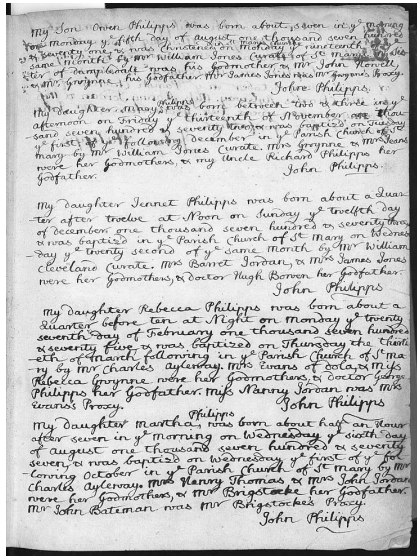 My Son Owen Philipps was born about seven in yͤ morning
on Monday yͤ fifth day of august one thousand seven hundred
& seventy one, & was christened on Monday yͤ nineteenth
same month by Mr William Jones Curate of St Mary's
his Godmother, & Mr John Howell,
& Mr Gwynne, his Godfather Mr James Jones was Mr Gwynne's Proxy.
John Philipps.
My daughter Mary Philipps was born between two & three in yͤ
afternoon on Friday yͤ thirteenth of November one thou
sand seven hundred & seventy & was baptized on Tuesday
yͤ first of yͤ following december in yͤ Parish Church of St
mary by Mr William Jones Curate. Mrs Gwynne & Mrs
were her Godmothers, & my Uncle Richard Philipps her
Godfather. John Philipps.
My daughter Jennet Philipps was born about a Quar
ter after twelve at Noon on Sunday yͤ twelfth day
of december one thousand seven hundred & seventy three
& was baptized in yͤ Parish Church of St Mary on Wednes
day yͤ twenty second of yͤ same month by Mr William
Cleveland Curate. Mrs Barret Jordan, & Mrs James Jones
were her Godmothers, & doctor Hugh Bowen her Godfather.
John Philipps
My daughter Rebecca Philipps was born about a
Quarter before ten at Night on Monday yͤ twenty
seventh day of February one thousand seven hundred
& seventy five & was baptized on Thursday the thirti
eth of March following in yͤ Parish Church of St ma
ry by Mr Charles Ayleway. Mrs Evans of dola, & Miss
Rebecca Gwynne were her Godmothers, & doctor George
Philipps her Godfather. Miss Nanny Jordan was Mrs
Evans's Proxy. John Philipps
My daughter Martha Philipps was born about half an Hour
after seven in yͤ morning on Wednesday yͤ sixth day
of august one thousand seven hundred & seventy
seven, & was baptized on Wednesday yͤ first of yͤ fol
lowing October in yͤ Parish Church of St mary by Mr
Charles Ayleway. Mrs Henry Thomas & Mrs John Jordan
were her Godmothers, & Mr Brigstocke her Godfather.
Mr John Bateman was Mr Brigstocke's Proxy.
John Philipps